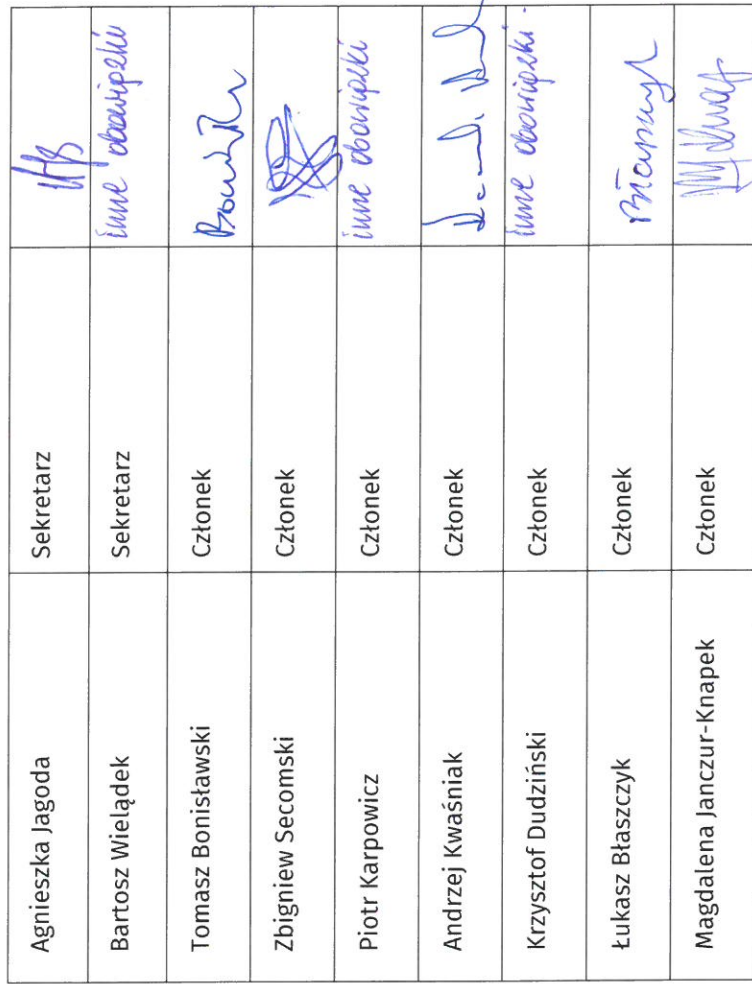 Agnieszka Jagoda Sekretarz
Bartosz Wielądek Sekretarz inne obowiązki
Tomasz Bonisławski Członek
Zbigniew Secomski Członek
Piotr Karpowicz Członek inne obowiązki
Andrzej Kwaśniak Członek
Krzysztof Dudziński Członek inne obowiązki.
Łukasz Błaszczyk Członek
Magdalena Janczur-Knapek Członek